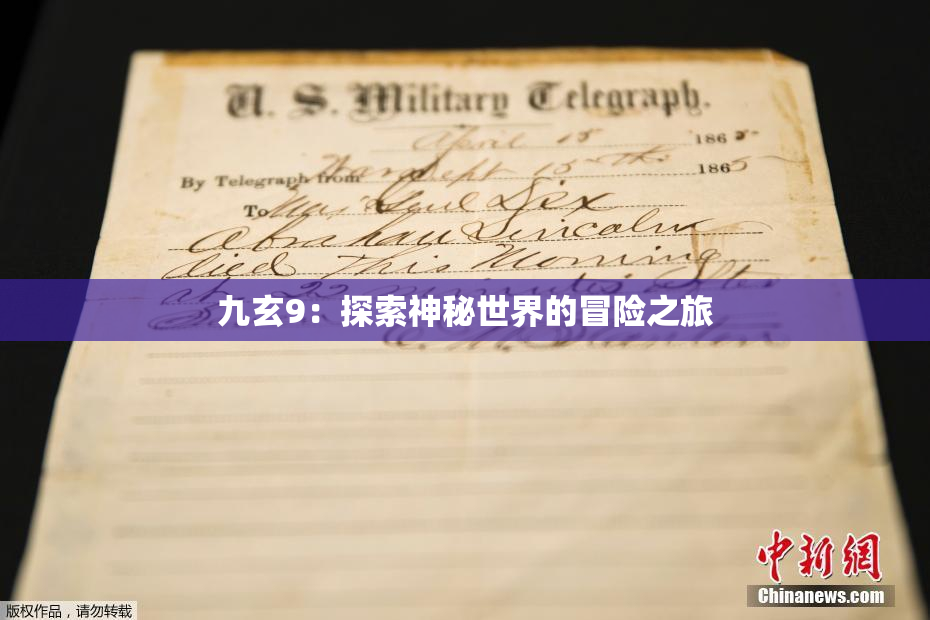 U. S. Military Telegraph.
April 15 1865
By Telegraph from War Dept 15th 1865
To Maj Genl Dix
Abraham Lincoln
died This Morning
at 22 minutes after
九玄9：探索神秘世界的冒险之旅
E. M. Stanton
中新網
Chinanews.com
版权作品，请勿转载